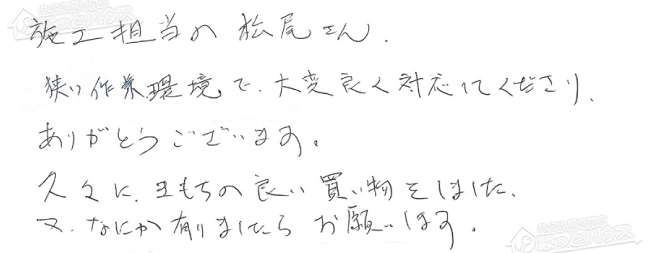 施工担当の松尾さん.
狭い作業環境で、大変良く対応してくださり、
ありがとうございます。
久々に、きもちの良い買い物をしました、
又、なにか有りましたら お願いします。